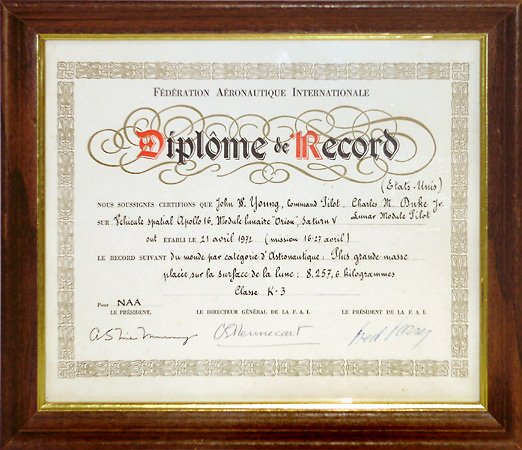 FÉDÉRATION AÉRONAUTIQUE INTERNATIONALE
Diplôme de Record
(Etats-Unis)
NOUS SOUSSIGNES CERTIFIONS QUE John W. Young, Command Pilot - Charles M. Duke Jr.
SUR Véhicule spatial Apollo 16, Module lunaire "Orion", Saturn V Lunar Module Pilot
ont ÉTABLI LE 21 avril 1972 (mission 16-27 avril)
LE RECORD SUIVANT du monde par catégorie d'Astronautique: Plus grande masse
placée sur la surface de la lune: 8.257,6 kilogrammes
Classe K-3
Pour NAA
LE PRÉSIDENT, LE DIRECTEUR GÉNÉRAL DE LA F. A. I. LE PRÉSIDENT DE LA F. A. I.